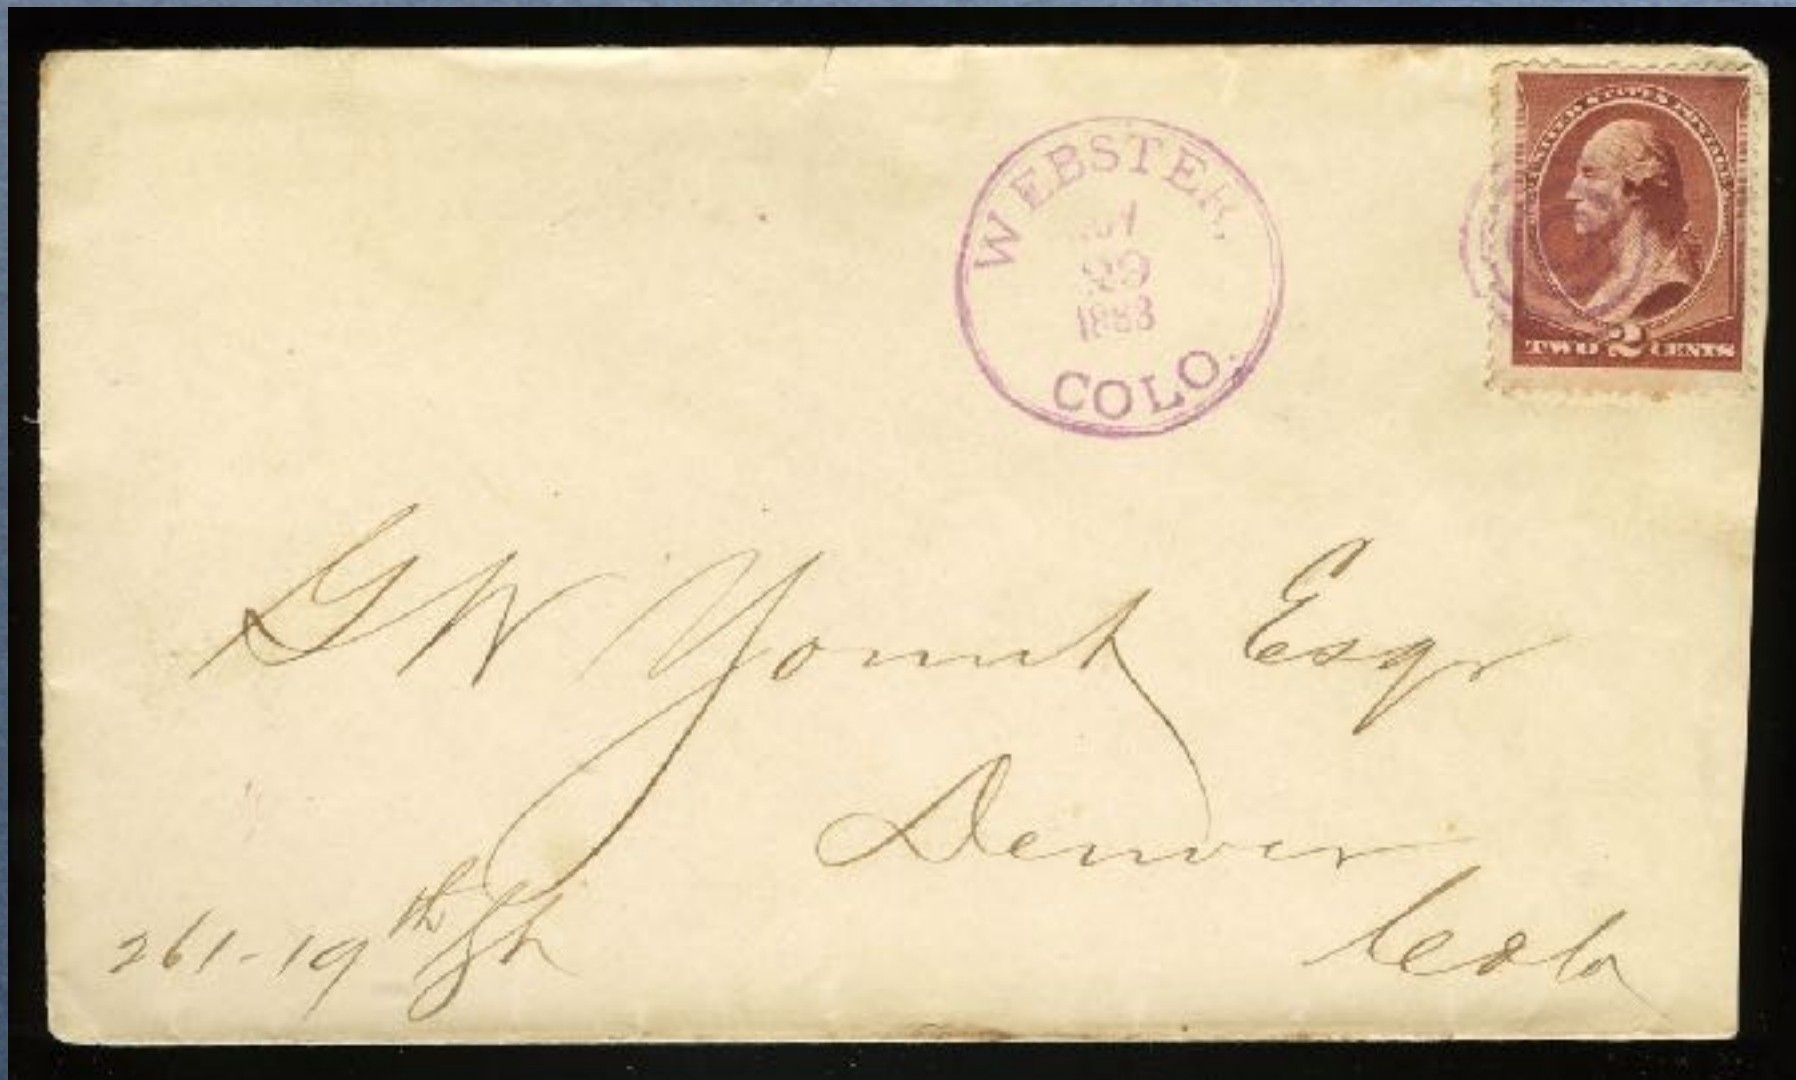 WEBSTER,
29
1883
COLO.
UNITED STATES POSTAGE
TWO 2 CENTS
G W Yount Esqr
Denver
Colo
261-19th St